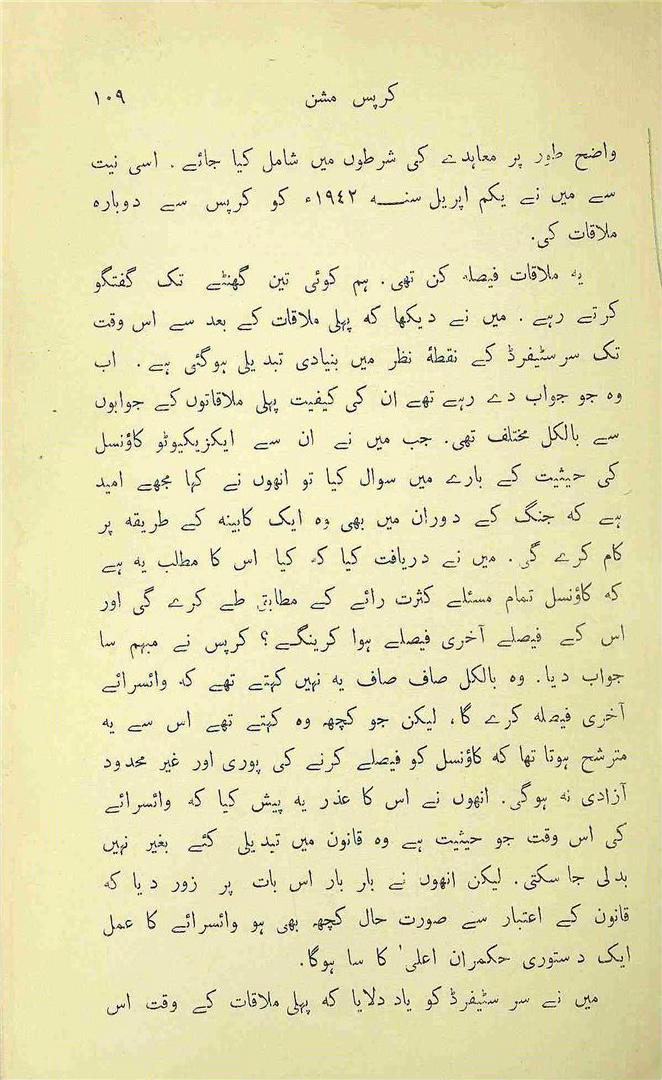 کرپس مشن ۱۰۹
واضح طور پر معاہدے کی شرطوں میں شامل کیا جائے۔ اسی نیت
سے میں نے یکم اپریل سنہ ۱۹۴۲ء کو کرپس سے دوبارہ
ملاقات کی۔
یہ ملاقات فیصلہ کن تھی۔ ہم کوئی تین گھنٹے تک گفتگو
کرتے رہے۔ میں نے دیکھا کہ پہلی ملاقات کے بعد سے اس وقت
تک سرسٹیفرڈ کے نقطۂ نظر میں بنیادی تبدیلی ہوگئی ہے۔ اب
وہ جو جواب دے رہے تھے ان کی کیفیت پہلی ملاقاتوں کے جوابوں
سے بالکل مختلف تھی۔ جب میں نے ان سے ایکزیکیوٹو کاؤنسل
کی حیثیت کے بارے میں سوال کیا تو انھوں نے کہا مجھے امید
ہے کہ جنگ کے دوران میں بھی وہ ایک کابینہ کے طریقہ پر
کام کرے گی۔ میں نے دریافت کیا کہ کیا اس کا مطلب یہ ہے
کہ کاؤنسل تمام مسئلے کثرت رائے کے مطابق طے کرے گی اور
اس کے فیصلے آخری فیصلے ہوا کرینگے؟ کرپس نے مبہم سا
جواب دیا۔ وہ بالکل صاف صاف یہ نہیں کہتے تھے کہ وائسرائے
آخری فیصلہ کرے گا، لیکن جو کچھ وہ کہتے تھے اس سے یہ
مترشح ہوتا تھا کہ کاؤنسل کو فیصلے کرنے کی پوری اور غیر محدود
آزادی نہ ہوگی۔ انھوں نے اس کا عذر یہ پیش کیا کہ وائسرائے
کی اس وقت جو حیثیت ہے وہ قانون میں تبدیلی کئے بغیر نہیں
بدلی جا سکتی۔ لیکن انھوں نے بار بار اس بات پر زور دیا کہ
قانون کے اعتبار سے صورت حال کچھ بھی ہو وائسرائے کا عمل
ایک دستوری حکمران اعلیٰ کا سا ہوگا۔
میں نے سر سٹیفرڈ کو یاد دلایا کہ پہلی ملاقات کے وقت اس